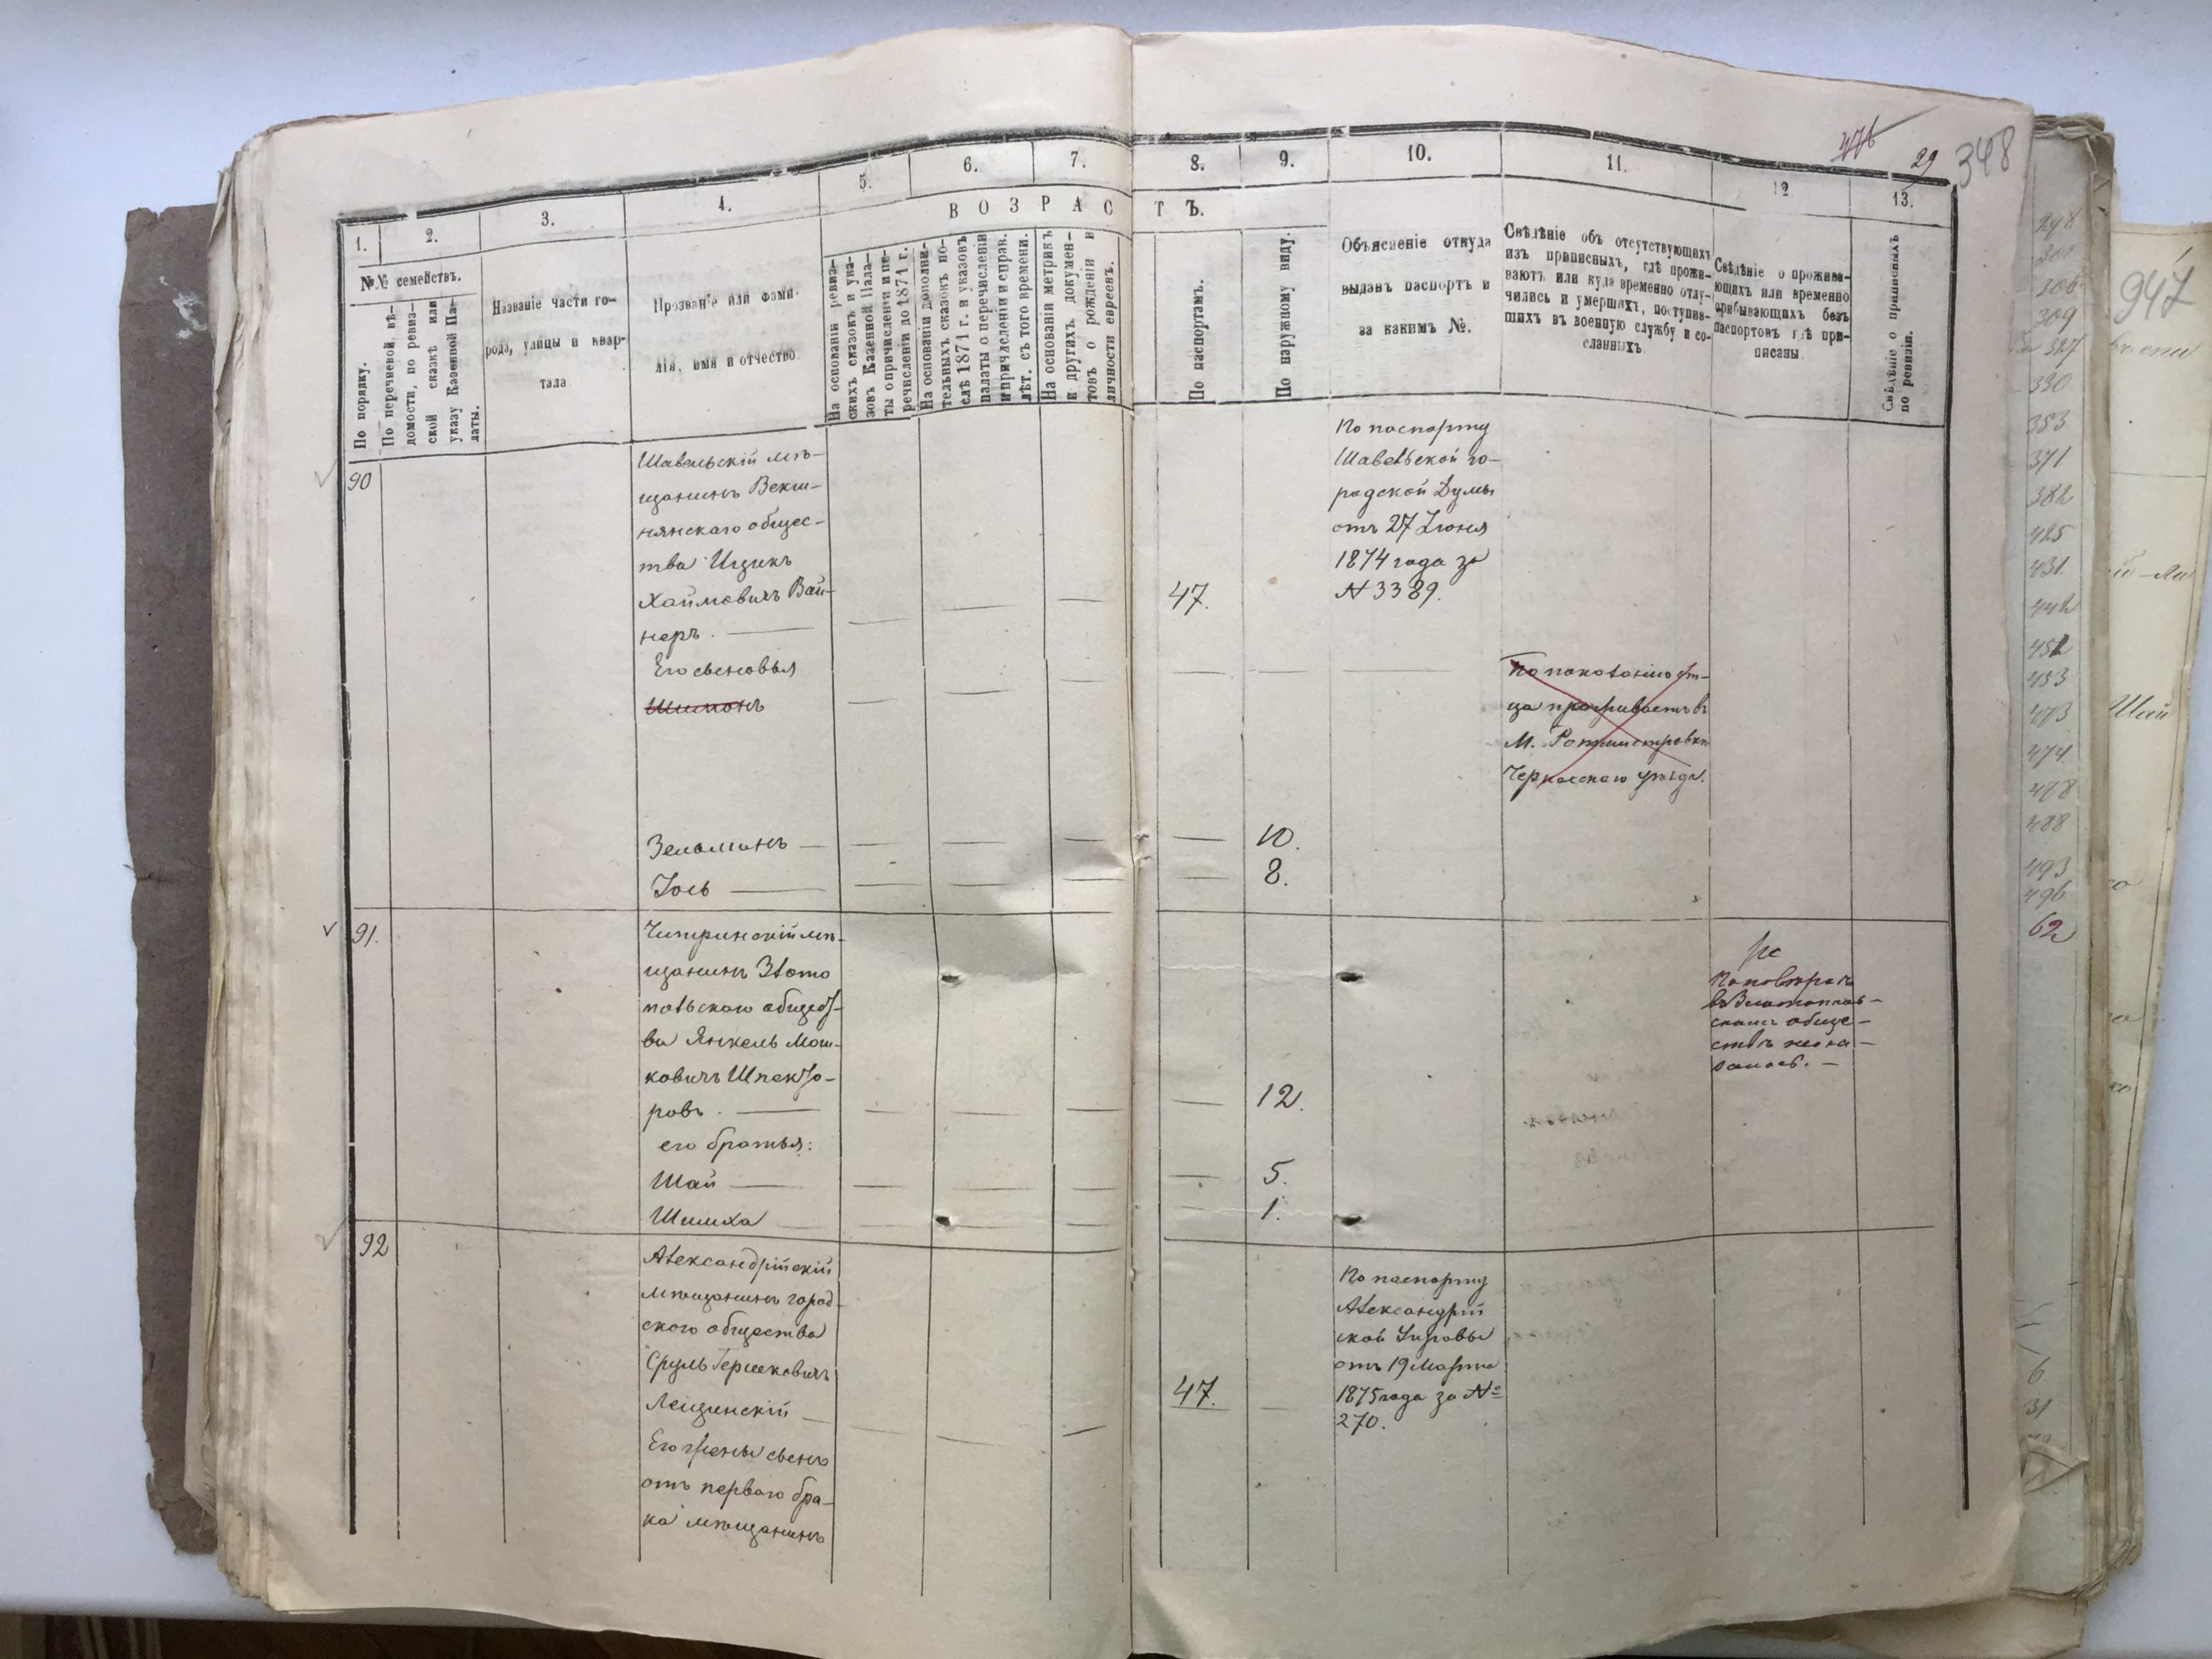 476
29
348
1.
2.
3.
4.
5.
6.
7.
8.
9.
10.
11.
12.
13.
ВОЗРАСТЪ.
№№ семействъ.
По порядку.
По перечневой вѣ-
домости, по ревиз-
ской сказкѣ или
указу Казенной Па-
латы.
Названіе части го-
рода, улицы и квар-
тала
Прозваніе или фами-
лія, имя и отчество.
На основаніи ревиз-
скихъ сказокъ и ука-
зовъ Казенной Пала-
ты о причисленіи и пе-
речисленіи до 1871 г.
На основаніи дополни-
тельныхъ сказокъ по-
слѣ 1871 г. и указовъ
палаты о перечисленіи
и причисленіи и справ.
лѣт. съ того времени.
На основаніи метрикъ
и другихъ докумен-
товъ о рожденіи и
личности евреевъ.
По паспортамъ.
По наружному виду.
Объясненіе откуда
выданъ паспортъ и
за какимъ №.
Свѣдѣніе объ отсутствующихъ
изъ приписныхъ, гдѣ прожи-
ваютъ или куда временно отлу-
чились и умершихъ, поступив-
шихъ въ военную службу и со-
сланныхъ.
Свѣдѣніе о прожива-
ющихъ или временно
прибывающихъ безъ
паспортовъ гдѣ при-
писаны.
Свѣдѣніе о приписныхъ
по ревизіи.
90
Шавельскій мѣ-
щанинъ Векш-
нянскаго общес-
тва Ицикъ
Хаимовичъ Вай-
неръ. —
47.
По паспорту
Шавельской го-
родской Думы
отъ 27 Іюня
1874 года за
№ 3389.
Его сыновья
Шимонъ
По показанію от-
ца проживаетъ въ
М. Ротмистровкѣ
Черкасскаго уѣзда.
Зельманъ — 10.
Іось — 8.
91.
Чигринскій мѣ-
щанинъ Злато
польскаго общест-
ва Янкель Мош-
ковичъ Шпекто-
ровъ. — 12.
его братья:
Шай — 5.
Шимха — 1.
По повѣркѣ
въ Златополь-
скомъ обще-
ствѣ не ока-
залось. —
92
Александрійскій
мѣщанинъ город-
ского общества
Сруль Гершковичъ
Лещинскій —
47.
По паспорту
Александрій
ской Управы
отъ 19 Марта
1875 года за №
270.
Его жены сынъ
отъ перваго бра-
ка мѣщанинъ
947
298
301
309
327
330
353
371
382
425
431
442
452
453
473
474
478
488
493
496
62
6.
31
Шай